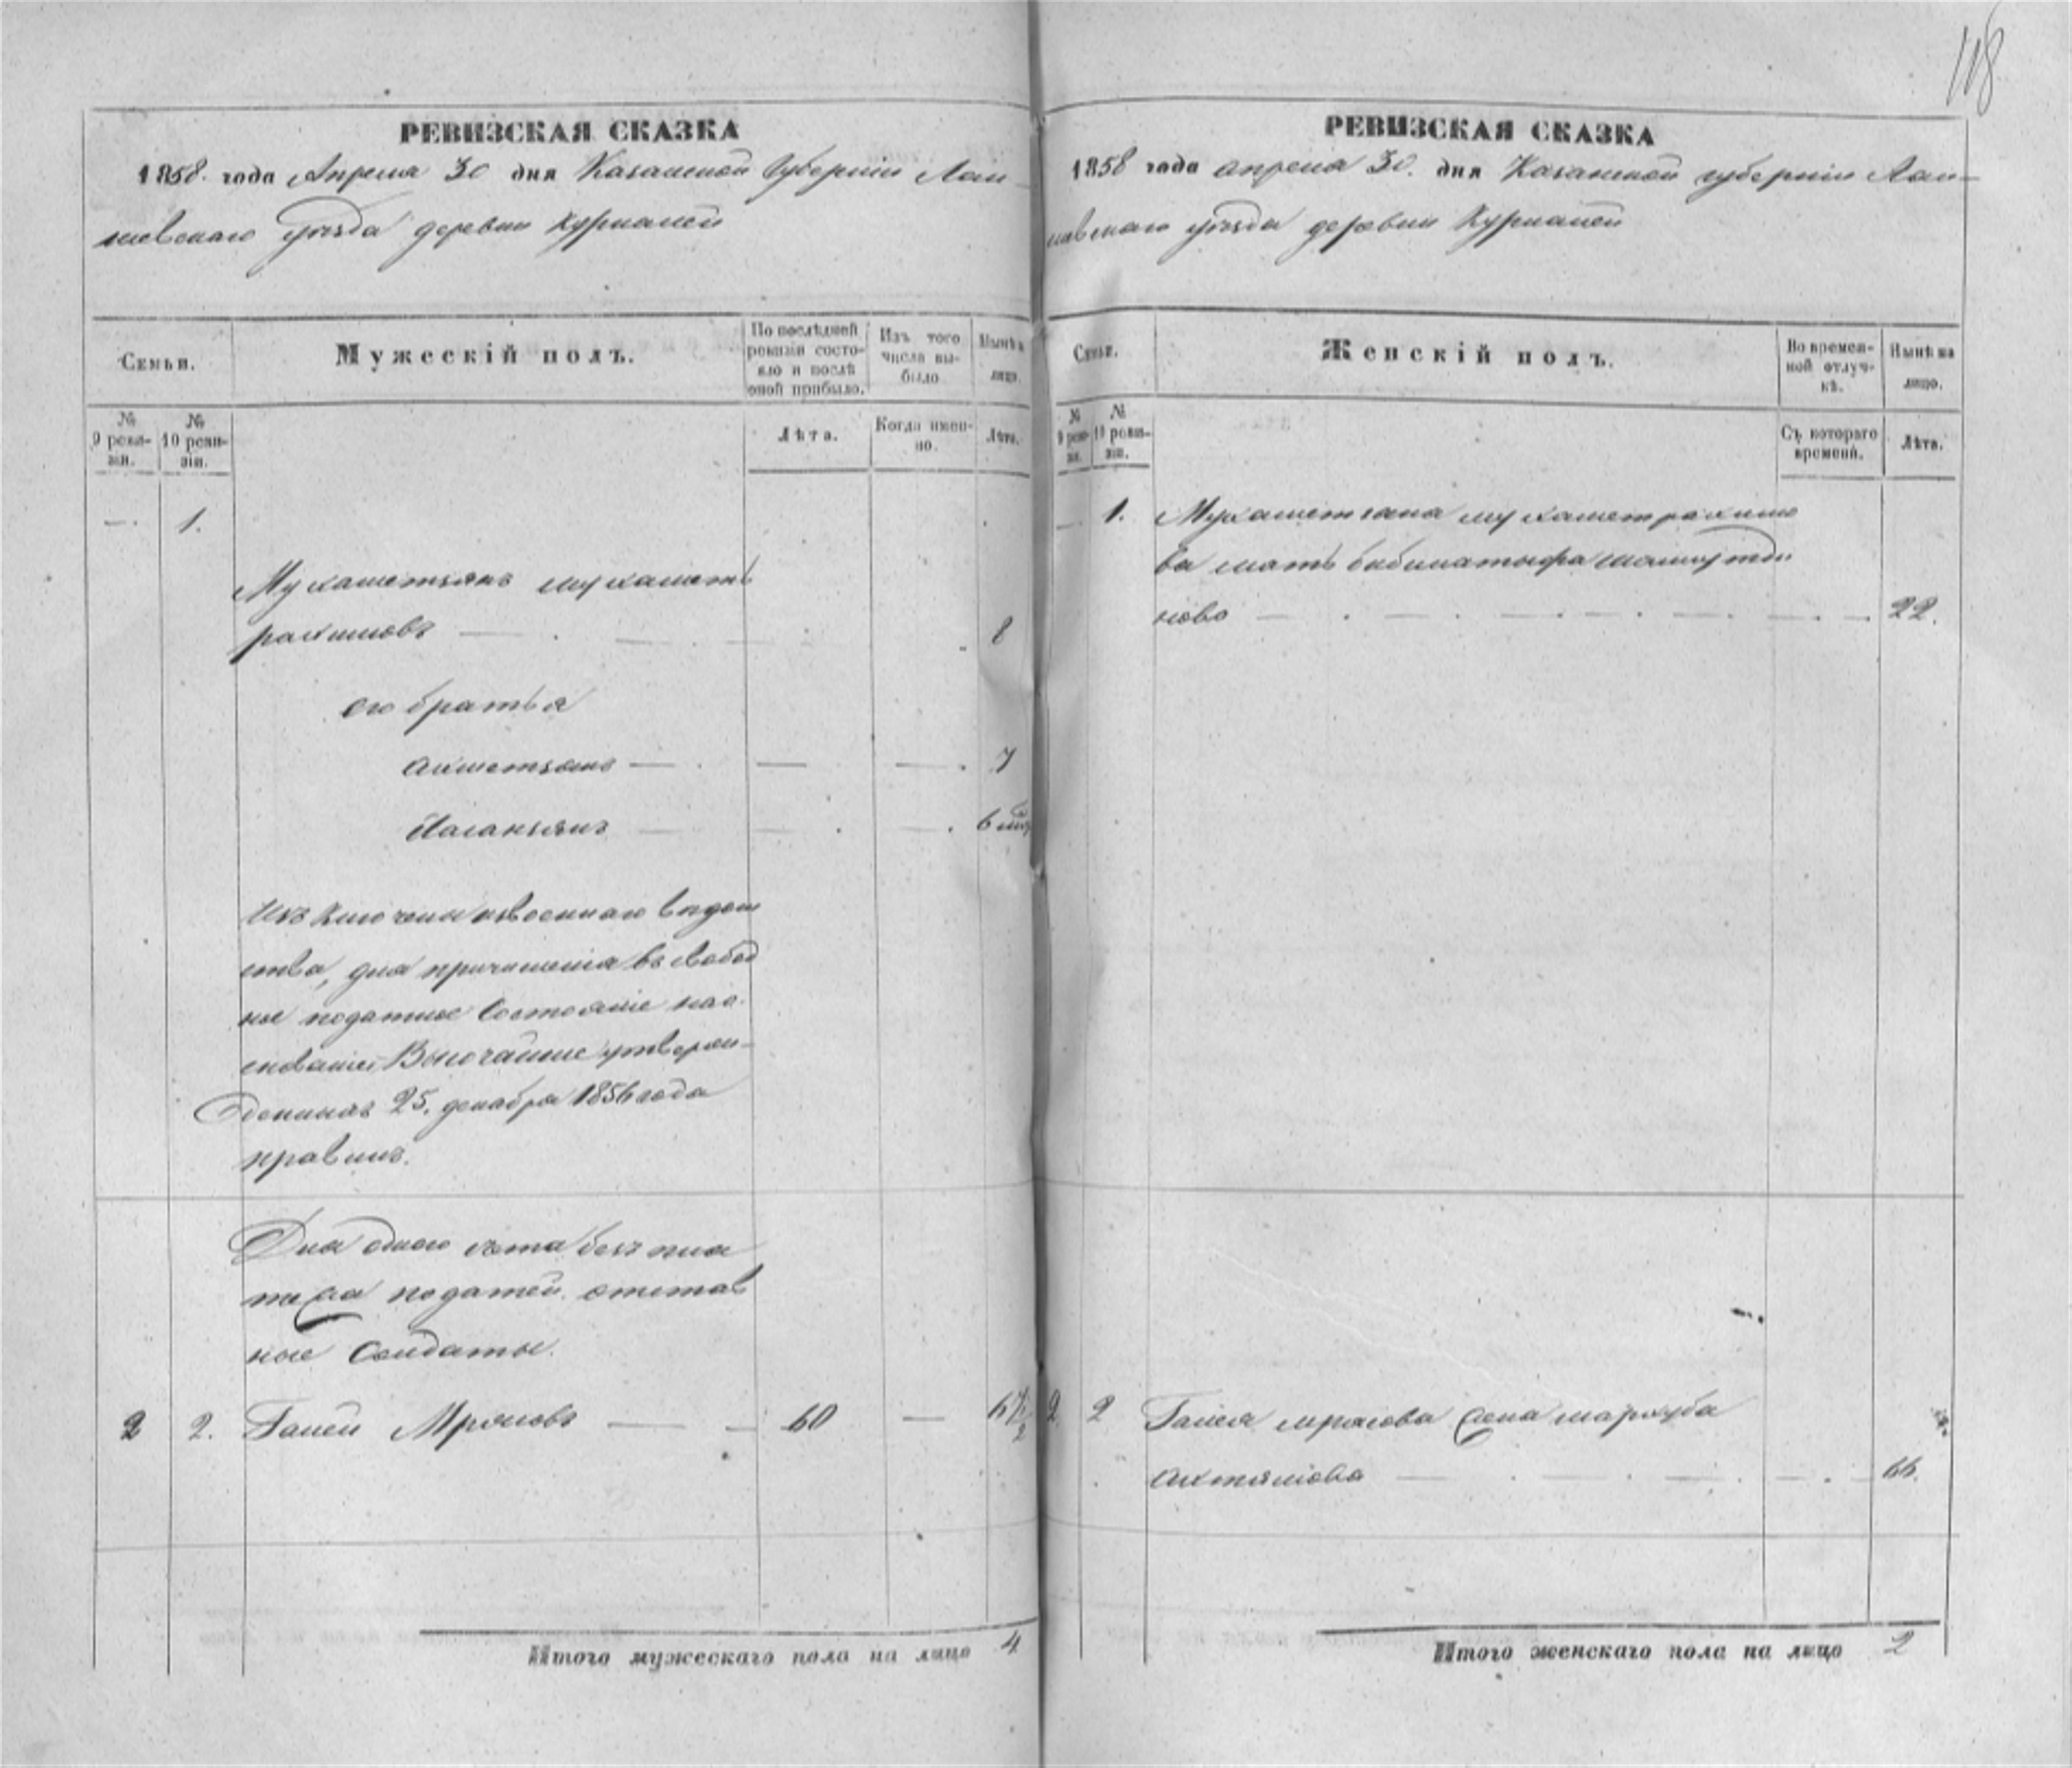 118
РЕВИЗСКАЯ СКАЗКА
1858 года Апреля 30 дня Казанской Губернiи Лаи
шевскаго уѣзда деревни Курманей
Семьи.
Мужескiй полъ.
По послѣдней ревизiи состояло и послѣ оной прибыло.
Изъ того числа выбыло
Нынѣ на лицо.
№ 9 ревизiи.
№ 10 ревизiи.
Лѣта.
Когда именно.
Лѣта.
— 1.
Мухаметзянъ мухаметъ
рахимовъ — 8
его братья
Ахметзянъ — 7
6 мѣ
Изъ Ключены изъ военнаго вѣдом
ства, для причисленiя въ свобод
ное податное Состоянiе на о
снованiи Высочайше утверж
денныхъ 25. декабря 1856 года
правилъ.
Для одного счета безъ пла
тежа податей. отстав
ные Солдаты.
2 2. Ганей Мрясовъ — 60 — 67 1/2
Итого мужескаго пола на лицо 4
РЕВИЗСКАЯ СКАЗКА
1858 года апреля 30. дня Казанской губернiи Лаи—
шевскаго уѣзда деревни Курманей
Семьи.
Женскiй полъ.
Во временной отлучкѣ.
Нынѣ на лицо.
№ 9 ревизiи.
№ 10 ревизiи.
Съ котораго времени.
Лѣта.
— 1. Мухаметзяна мухаметрахимо
ва мать
нова — 22.
2. 2 Ганея мрясова жена
Ахтямова — 66.
Итого женскаго пола на лицо 2